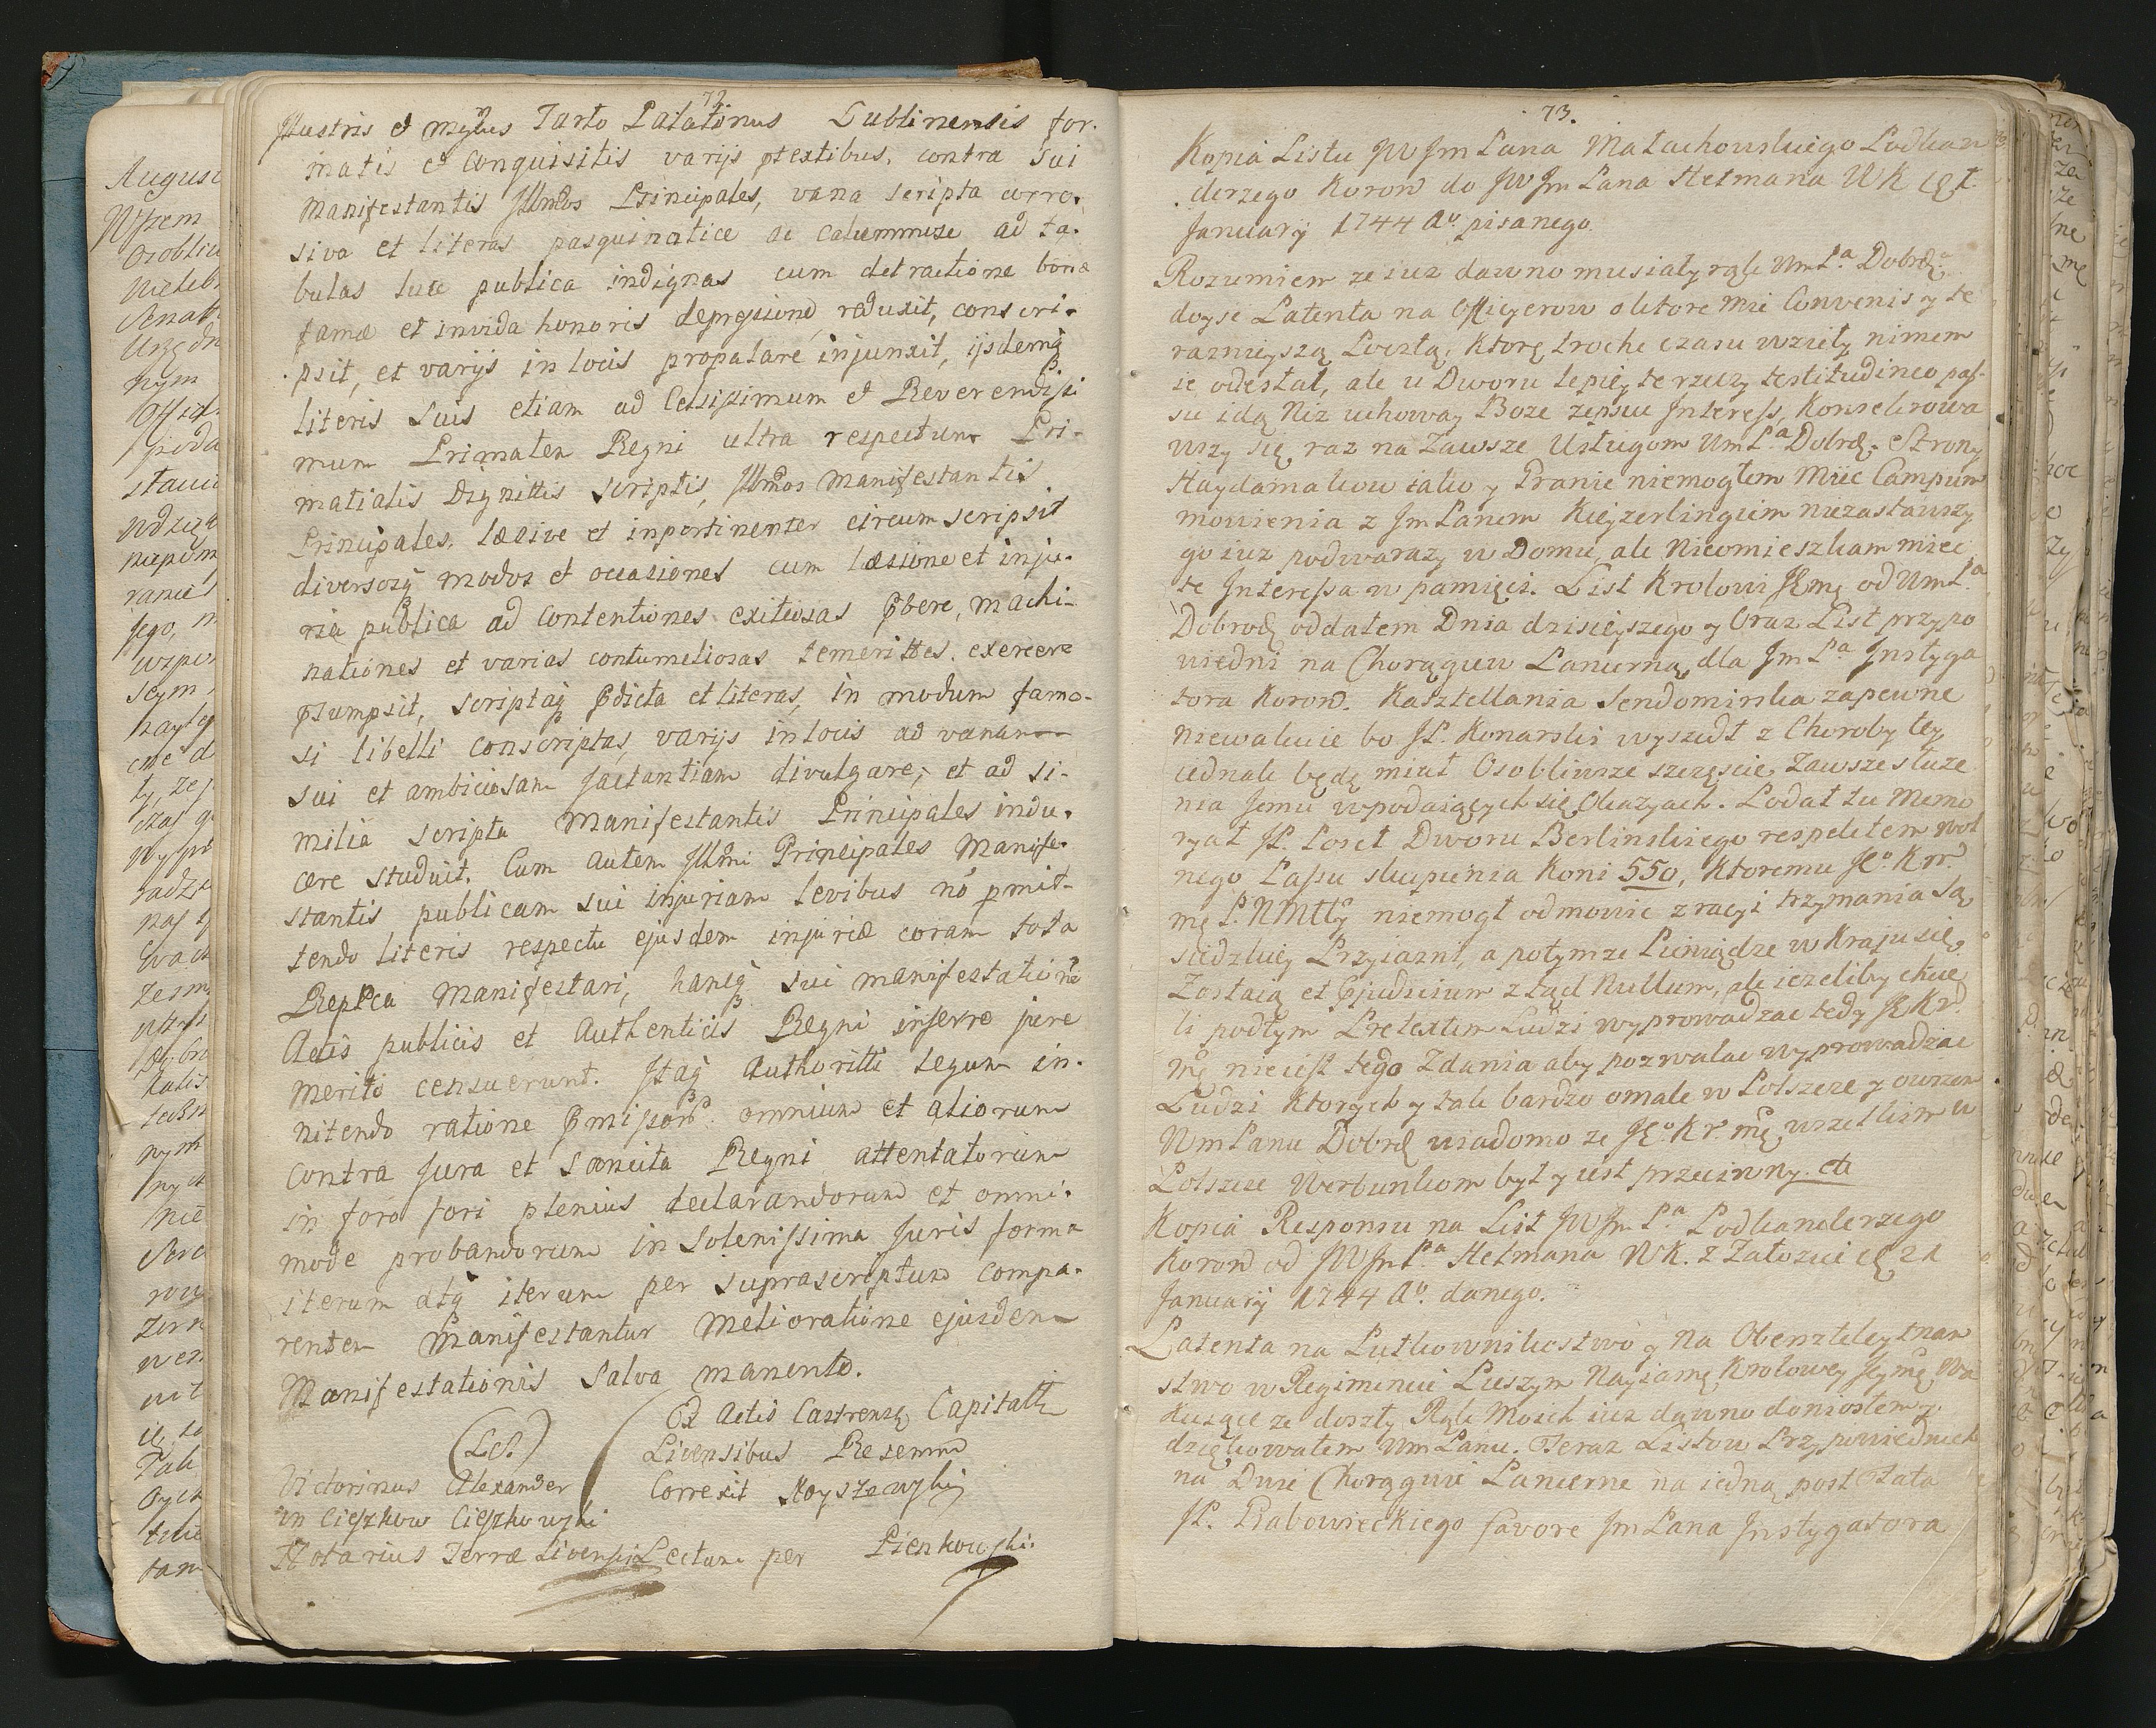 72
Illustris et Mgcus Tarło Palatinus Lublinensis for.
matis et conquisitis varijs ptextibus, contra sui
Manifestantis Illmos Principales, vana scripta corro.
siva et literas pasquinatice ac calumniose ad ta.
bulas luce publica indignas cum detractione bonæ
famæ et invida honoris depressione reduxit, conscri.
psit, et varijs in locis propalare injunxit, ijsdemq
literis suis etiam ad Celsissimum et Reverendissi
mum Primatem Regni ultra respectum Pri-
matialis Dignittis scriptis, Illmos Manifestantis
Principales, læsive et inpertinenter circumscripsit
diversorq modos et occasiones cum læsione et inju.
ria publica ad contentiones exitiosas pbere, machi-
nationes et varias contumeliosas temerittes exercere
psumpsit, scriptaq pdicta et literas, in modum famo-
si libelli conscriptas, varijs in locis ad vanam
sui et ambiciosam jactantiam divulgare, et ad si-
milia scripta Manifestantis Principales indu.
cere studuit. Cum autem Illmi Principales Manife-
stantis publicam sui injuriam levibus no pmit-
tendo literis respectu ejusdem injuriæ coram tota
Replca Manifestari, hancq sui manifestatione
Actis publicis et Authenticis Regni inferre jure
merito censuerunt. Itaq Authoritti legum in-
nitendo ratione pmissorr omnium et aliorum
contra Jura et Sancita Regni attentatorum
in foro fori plenius declarandorum et omni.
mode probandorum in Solenissima Juris forma
iterum atq iterum per suprascriptum compa.
rentem manifestantur Melioratione ejusdem
Manifestationis Salva manente.
(LS) Ex Actis Castrens Capitali
Livensibus Resemm
Victorinus Alexander Correxit
in Cieszkow Cieszkowski
Notarius Terræ Livensis Lectum per Pienkowski.
73.
Kopia Listu JW Jm Pana Małachowskiego Podkan
derzego Koron do JW Jm Pana Hetmana WK
January 1744 Ao pisanego.
Rozumiem ze iuz dawno musiały rąk WmPa Dobrdz
doyść Patenta na Officyerow o ktore mie Convenis y te
raznieyszą Pocztą, Ktorę troche czasu wzięły nimem
ie odesłał, ale u Dworu lepiey te rzeczy testitudineo pas-
su idą Niz uchoway Boze zepsuc Interess, Konsekrowa
wszy się raz na Zawsze Usługom WmPa Dobrdz. Strony
Haydamakow iako y Pranie niemogłem Miec Campum
mowienia z Jm Panem Keyzerlingiem niezastawszy
go iuz podwarazy w Domu, ale Nieomieszkam miec
te Interessa w pamięci. List Krolowi JEmę od WmPa
Dobrodz oddałem Dnia dzisieyszego y Oraz List przypo
wiedni na Chorągiew Pancerną dla Jm Pa Instyga
tora Koron. Kasztellania Sendomirska zapewne
niewakuie bo JP. Konarski wyszedł z Choroby tey
iednak będę miał Osobliwsze szczęscie Zawsze słuze
nia Jemu wpodaiących się Okazyach. Podał tu Memo
ryał JP. Poseł Dworu Berlinskiego respektem wol
nego Passu skupienia Koni 550, Ktoremu JEo Kr
mę P. N Mtty niemogł odmowic z racyi trzymania Są
siedzkiey Przyiazni, a potymze Pieniądze w Kraju się
Zostaią et pjudicium ztąd Nullum, ale iezeliby chcie
li podtym Pretextem Ludzi wyprowadzac tedy JE Kr
mę nieiest tego Zdania aby pozwalac wyprowadzac
Ludzi Ktorych y tak bardzo omale w Polszcze y owszem
WmPanu Dobrdz wiadomo ze JEo Kr. mę wszelkim w
Polszcze Werbunkom był y iest przeciwny. etc
Kopia Responsu na List JW Jm Pa Podkanclerzego
Koron od JW Jm Pa Hetmana WK. z Załoziec 21
January 1744 Ao. danego.
Patenta na Putkownikostwo y na Obersztleytnan
stwo w Regimencie Pieszym Nayiasnę Krolowey Jeymę Wa
kuiące ze doszły Rąk Moich iuz dawno doniosłem y
dziękowałem WmPanu. Teraz Listow Przypowiednich
na Dwie Chorągwie Pancerne na iedną post Fata
JP. Grabowieckiego favore Jm Pana Instygatora